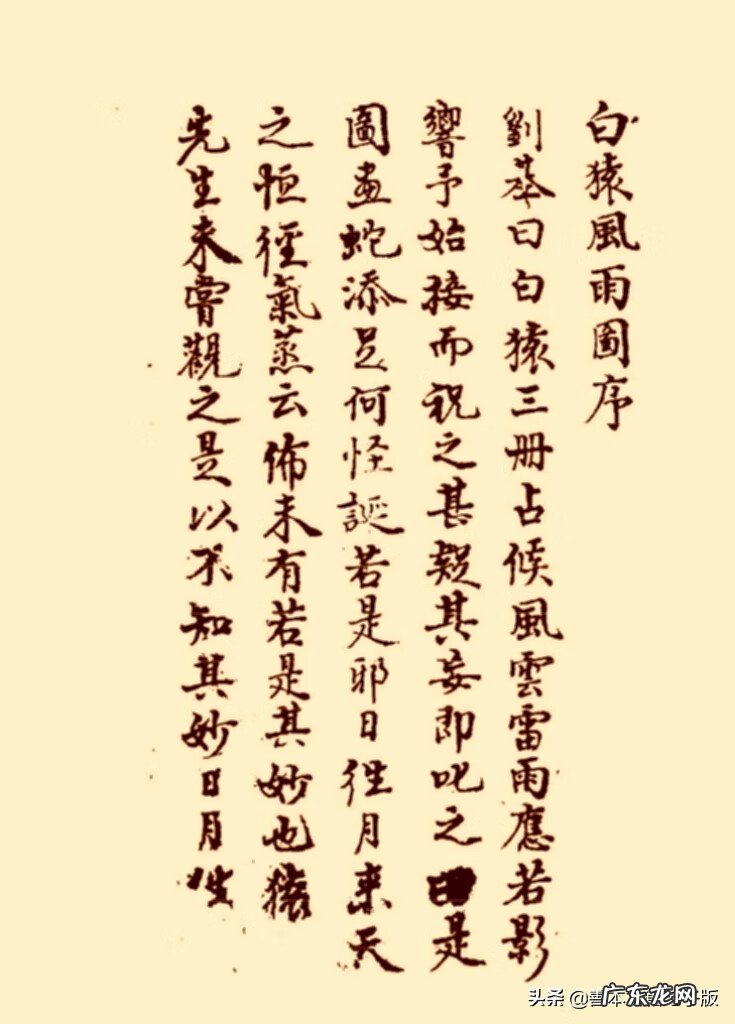 白猿風雨圖序
劉基曰白猿三册占候風雲雷雨應若影
響予始接而視之甚疑其妄即叱之曰是
圖畫蛇添足何怪誕若是耶日往月來天
之恒徑氣蒸云佈未有若是其妙也猿
先生未嘗觀之是以不知其妙日月性
头条 @善本
版
广东龙网